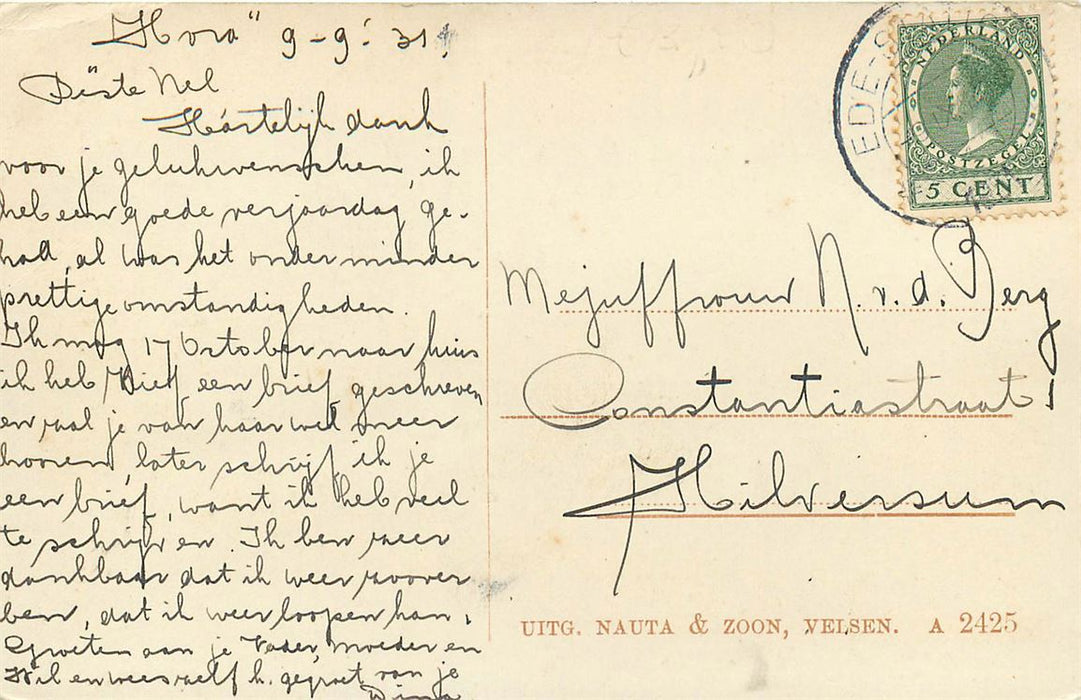 "Hora" 9-9-'31
Beste Nel
Hartelijk dank
voor je gelukwenschen, ik
heb een goede verjaardag ge-
had, al was het onder minder
prettige omstandigheden.
Ik mag 17 October naar huis
ik heb een brief geschreven
en zal je van haar wel meer
hooren, later schrijf ik je
een brief, want ik heb veel
te schrijven. Ik ben zeer
dankbaar dat ik weer zoover
ben, dat ik weer loopen kan.
Groeten aan je Vader, moeder en
Wil en wees zelf h. gegroet van je
Dina
EDE-
NEDERLAND
POSTZEGEL
5 CENT
Mejuffrouw N. v. d. Berg
Constantiastraat 1
Hilversum
UITG. NAUTA & ZOON, VELSEN. A 2425